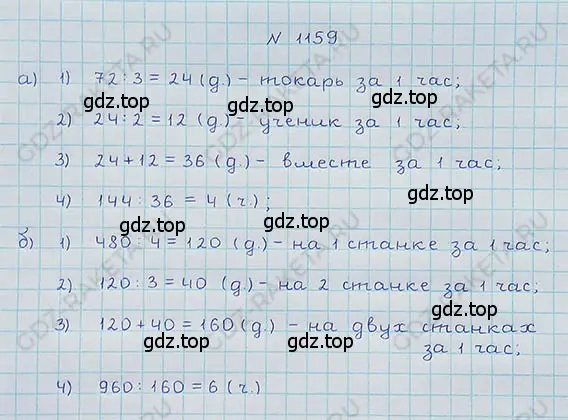 N 1159
а) 1) 72 : 3 = 24 (д.) – токарь за 1 час;
gdz.top gdz.top
2) 24 : 2 = 12 (д.) – ученик за 1 час;
3) 24 + 12 = 36 (д.) – вместе за 1 час;
gdz.top gdz.top
4) 144 : 36 = 4 (ч.);
gdz.top gdz.top
б) 1) 480 : 4 = 120 (д.) – на 1 станке за 1 час;
2) 120 : 3 = 40 (д.) – на 2 станке за 1 час;
gdz.top
3) 120 + 40 = 160 (д.) – на двух станках
gdz.top
за 1 час;
4) 960 : 160 = 6 (ч.)
gdz.top
GDZ-RAKETA.RU